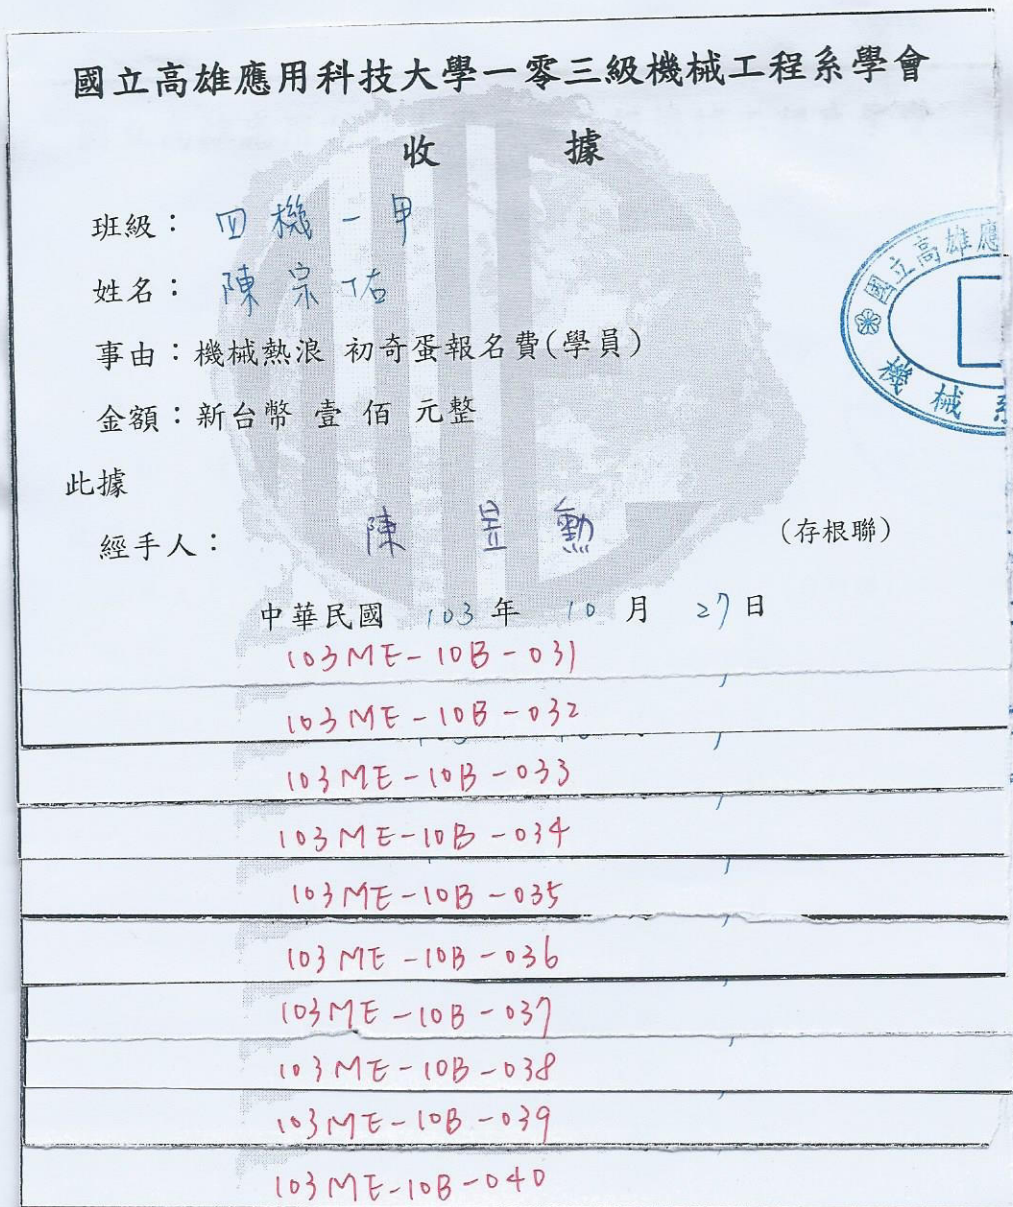 國立高雄應用科技大學一零三級機械工程系學會
收 據
班級：四機一甲
姓名：陳宗佑
國立高雄應
機械系
事由：機械熱浪 初奇蛋報名費(學員)
金額：新台幣 壹 佰 元整
此據
經手人：陳昱勳
(存根聯)
中華民國 103 年 10 月 27 日
103ME-10B-031
103ME-10B-032
103ME-10B-033
103ME-10B-034
103ME-10B-035
103ME-10B-036
103ME-10B-037
103ME-10B-038
103ME-10B-039
103ME-10B-040